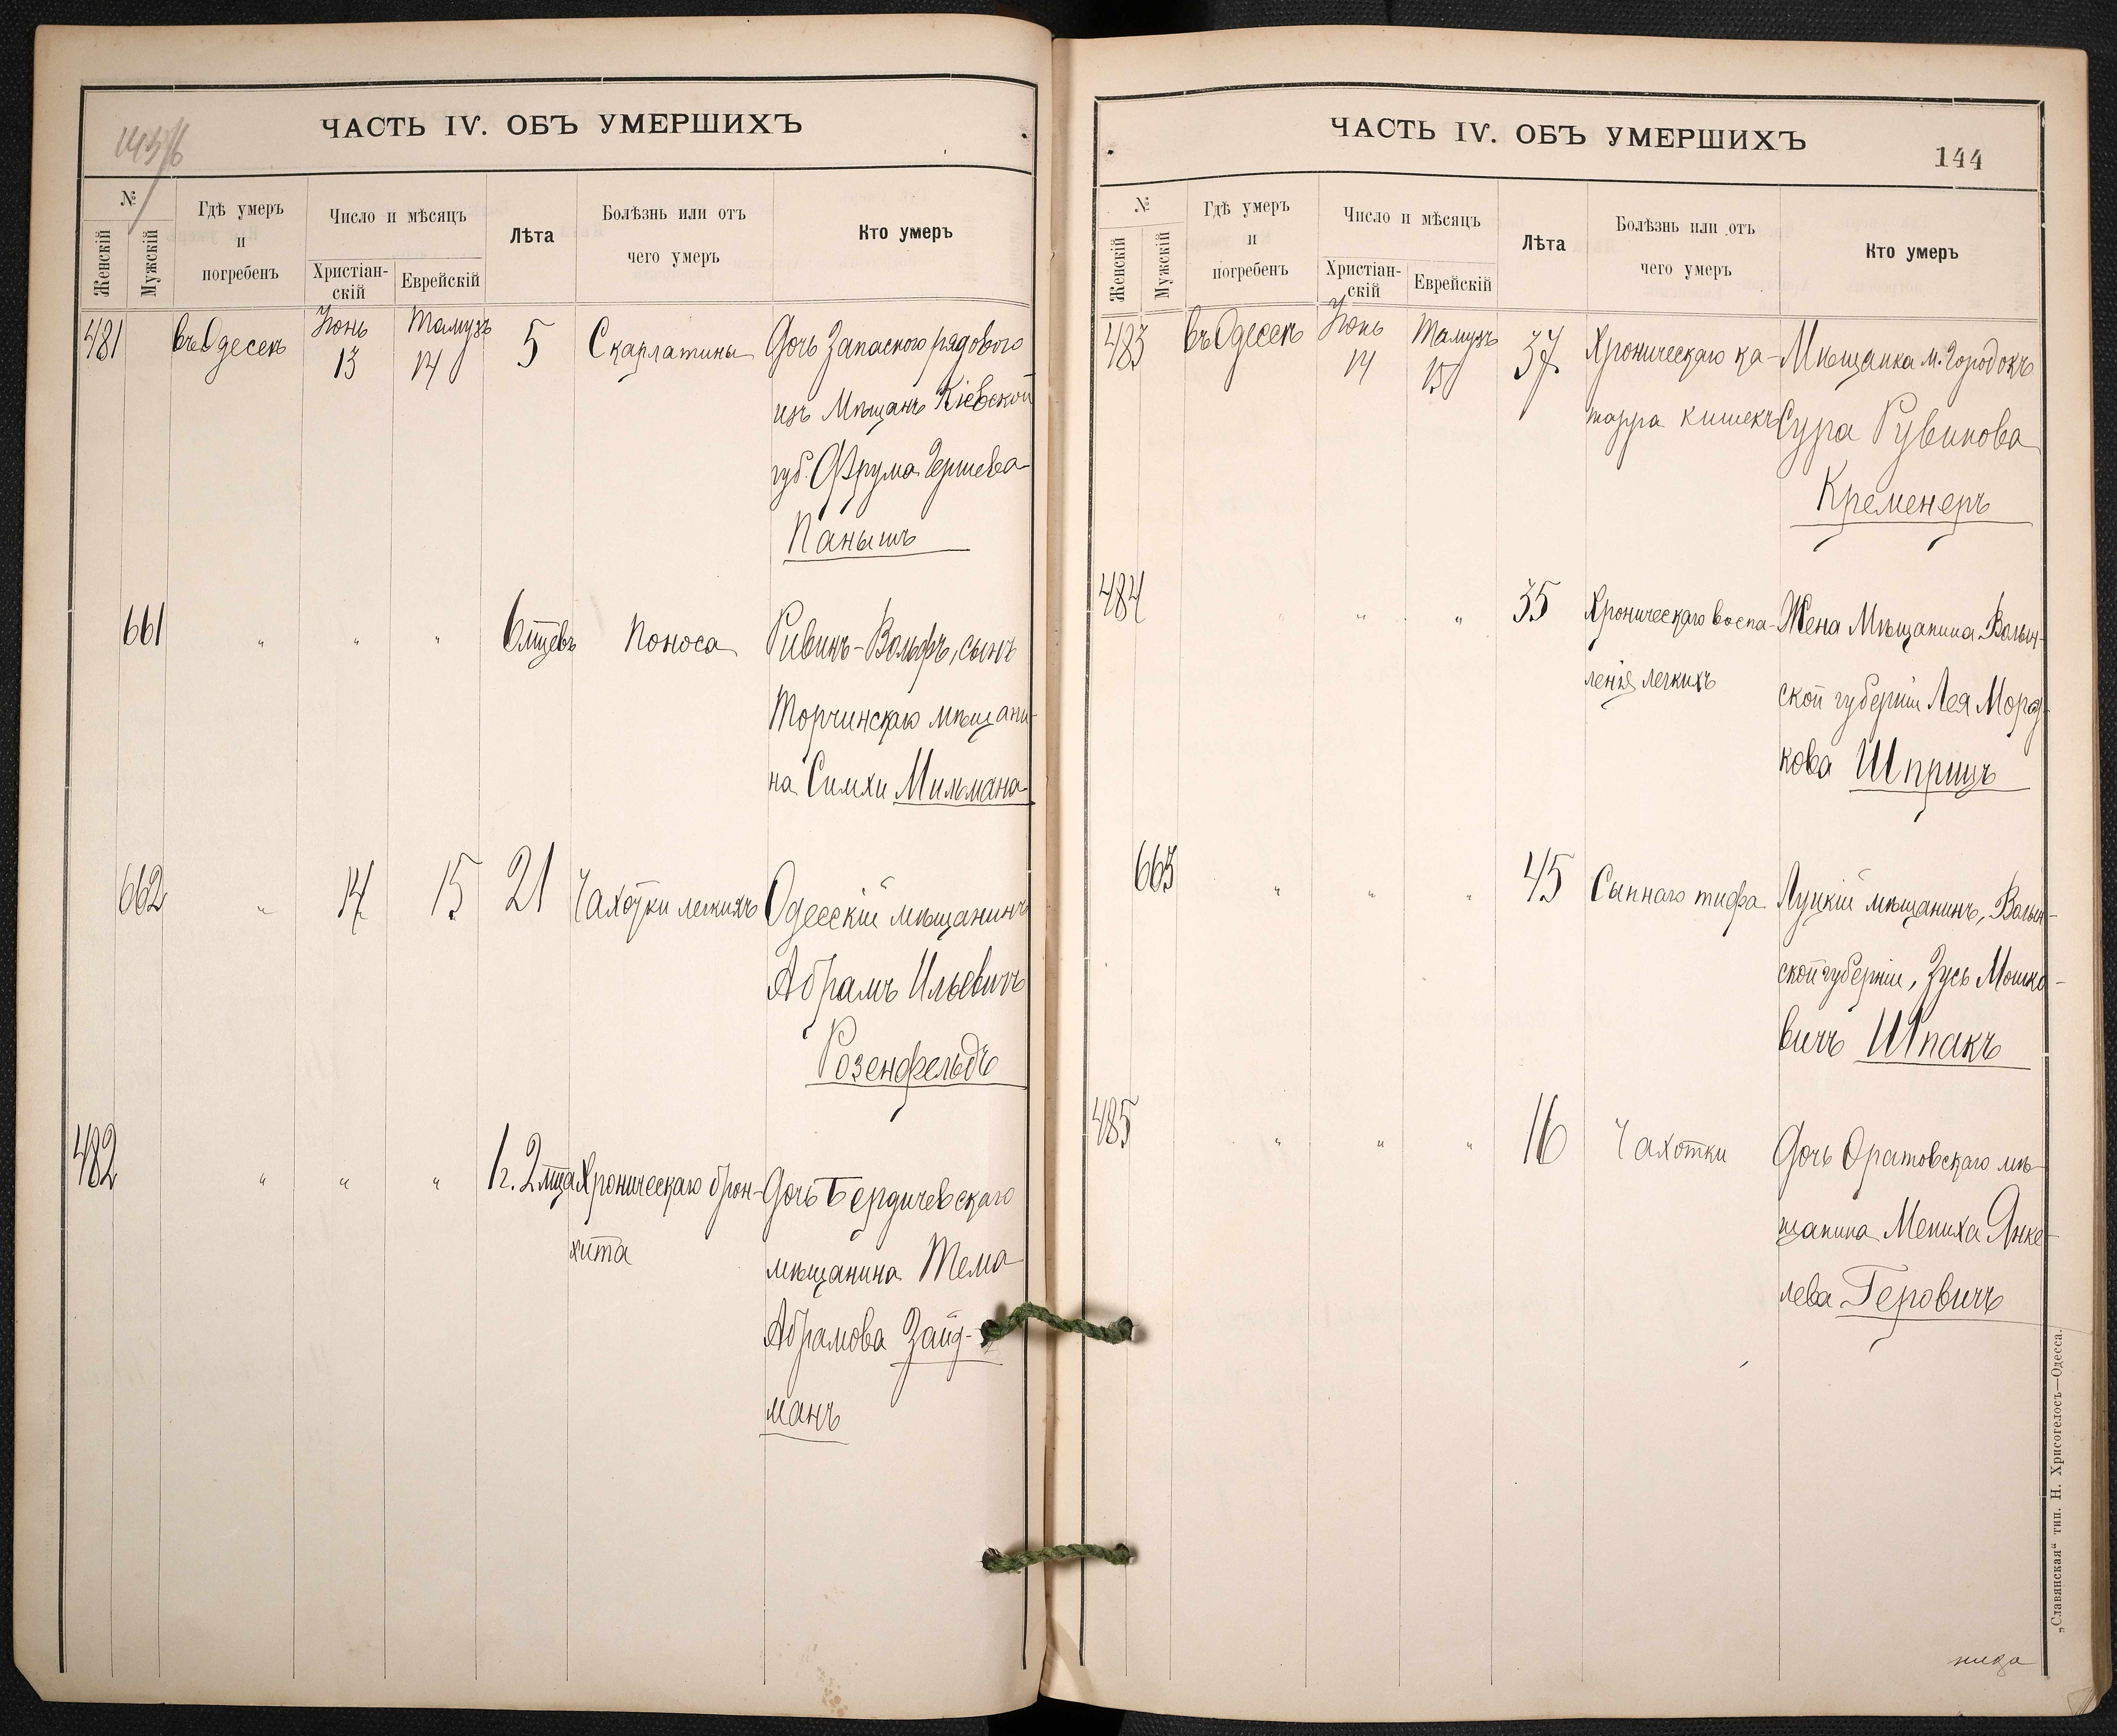 ЧАСТЬ IV. ОБЪ УМЕРШИХЪ
№
Женскій
Мужскій
Гдѣ умеръ
и
погребенъ
Число и мѣсяцъ
Христіан-
скій
Еврейскій
Лѣта
Болѣзнь или отъ
чего умеръ
Кто умеръ
481 въ Одессѣ Іюнь 13 Тамузъ 14 5 Скарлатины Дочь Запасного рядового
изъ Мѣщанъ Кіевской
губ. Фрума Гершева
Панышъ
661 " " " 6 мцевъ Поноса Рувинъ-Вольфъ, сынъ
Торчинскаго мѣщани-
на Симхи Мильмана
662 " 14 15 21 Чахотки легкихъ Одесскій мѣщанинъ
Абрамъ Ильевичъ
Розенфельдъ
482 " " " 1 г. 2 мца Хроническаго брон- Дочь Бердичевскаго
хита мѣщанина Тема
Абрамова Зайд-
манъ
ЧАСТЬ IV. ОБЪ УМЕРШИХЪ
144
№
Женскій
Мужскій
Гдѣ умеръ
и
погребенъ
Число и мѣсяцъ
Христіан-
скій
Еврейскій
Лѣта
Болѣзнь или отъ
чего умеръ
Кто умеръ
483 въ Одессѣ Іюнь 14 Тамузъ 15 37 Хроническаго ка- Мѣщанка м. Городокъ
тарра кишекъ Сура Рувинова
Кременеръ
484 " " " 35 Хроническаго воспа- Жена Мѣщанина Волын-
ленія легкихъ ской губерніи Лея Морд-
кова Шприцъ
663 " " " 45 Сыпнаго тифа Луцкій мѣщанинъ, Волын-
ской губерніи, Зусь Мошко-
вичъ Шпакъ
485 " " " 16 Чахотки Дочь Оратовскаго мѣ-
щанина Мениха Янке-
лева Геровичъ
„Славянская“ тип. Н. Хрисогелосъ—Одесса.